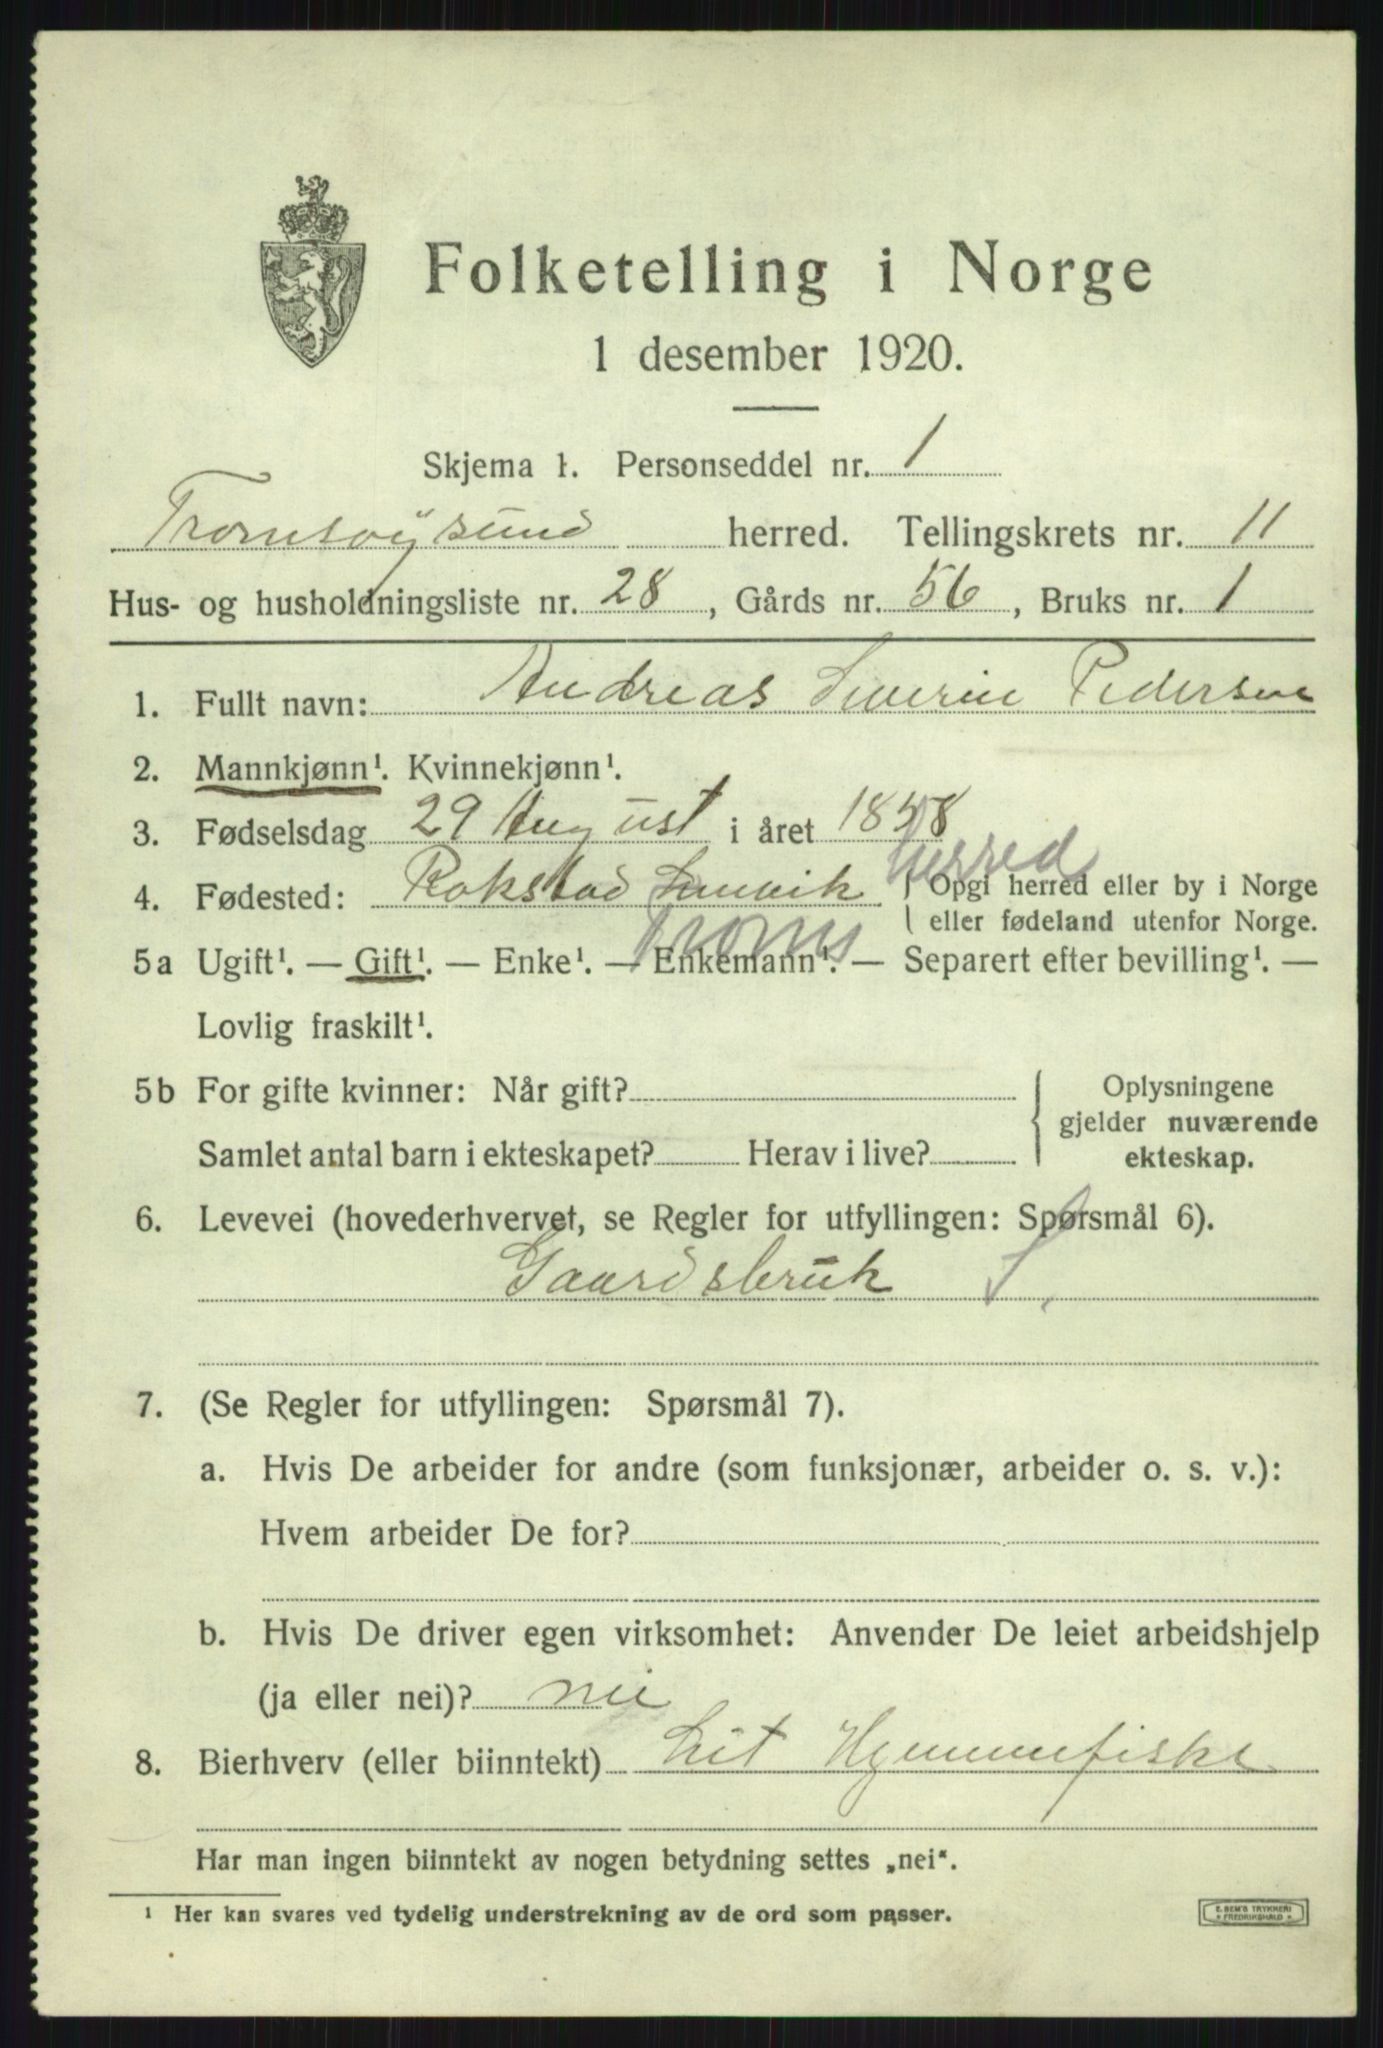 Folketelling i Norge
1 desember 1920.
Skjema 1. Personseddel nr. 1
Tromsøysund herred. Tellingskrets nr. 11
Hus- og husholdningsliste nr. 28, Gårds nr. 56, Bruks nr. 1
1. Fullt navn: Andreas Severin Pedersen
2. Mannkjønn¹. Kvinnekjønn¹.
3. Fødselsdag 29 August i året 1858
4. Fødested: Rokstad herred
Opgi herred eller by i Norge
eller fødeland utenfor Norge.
Troms
5a Ugift¹. — Gift¹. — Enke¹. — Enkemann¹. — Separert efter bevilling¹. —
Lovlig fraskilt¹.
5b For gifte kvinner: Når gift?
Samlet antal barn i ekteskapet? Herav i live?
Oplysningene
gjelder nuværende
ekteskap.
6. Levevei (hovederhvervet, se Regler for utfyllingen: Spørsmål 6).
Gaardsbruk S.
7. (Se Regler for utfyllingen: Spørsmål 7).
a. Hvis De arbeider for andre (som funksjonær, arbeider o. s. v.):
Hvem arbeider De for?
b. Hvis De driver egen virksomhet: Anvender De leiet arbeidshjelp
(ja eller nei)? nei
8. Bierhverv (eller biinntekt) Lit Hjemmefiske
Har man ingen biinntekt av nogen betydning settes „nei“.
¹ Her kan svares ved tydelig understrekning av de ord som passer.
E. SEM'S TRYKKERI
FREDRIKSHALD